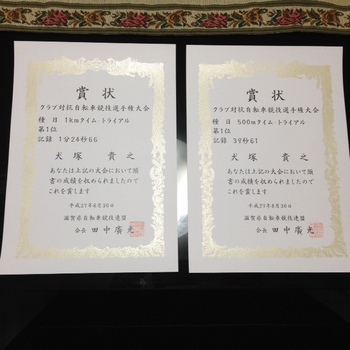 賞状
クラブ対抗自転車競技選手権大会
種 目 1kmタイム・トライアル
第1位
記録 1分24秒66
犬塚 貴之
あなたは上記の大会において頭
書の成績を収められましたので
これを賞します
平成27年8月30日
滋賀県自転車競技連盟
会長 田中廣光
賞状
クラブ対抗自転車競技選手権大会
種 目 500mタイム・トライアル
第1位
記録 39秒61
犬塚 貴之
あなたは上記の大会において頭
書の成績を収められましたので
これを賞します
平成27年8月30日
滋賀県自転車競技連盟
会長 田中廣光